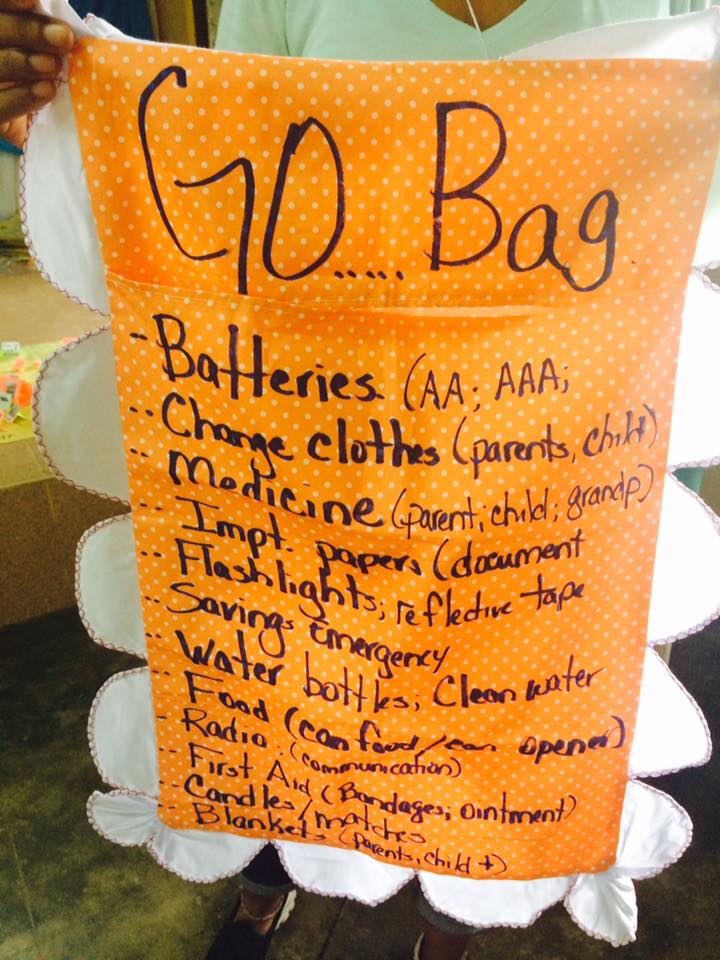 GO..... Bag.
- Batteries (AA; AAA;
-- Change clothes (parents, child+)
-- Medicine (parent; child; grandp)
-- Impt. papers (document
-- Flashlights; reflective tape
-- Savings Emergency
-- Water bottles; Clean water
-- Food (can food/can opener)
- Radio. (communication)
-- First Aid (Bandages; ointment)
-- Candles/matches
-- Blankets (parents, child +)